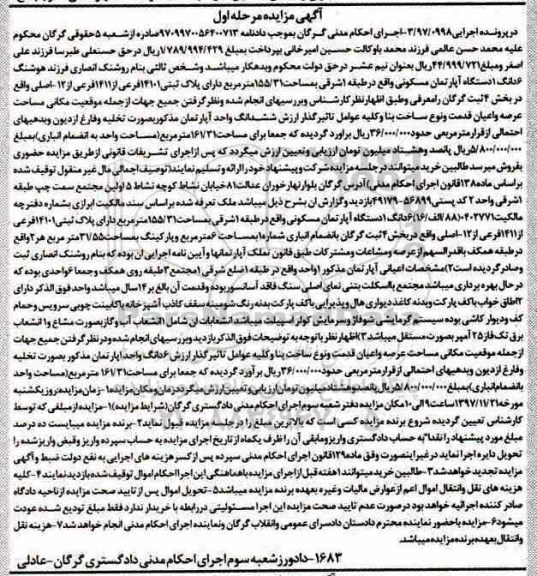 آگهی مزایده مرحله اول
در پرونده اجرایی ۳/۹۷/۰۹۹۸-اجرای احکام مدنی گرگان بموجب دادنامه ۹۷۰۹۹۷۰۰۵۶۴۰۰۷۱۳صادره ازشعبه ۵حقوقی گرگان محکوم
علیه محمد حسن عالمی فرزند محمد باوکالت حسین امیرخانی بپرداخت بمبلغ ۱/۷۸۹/۹۹۴/۴۲۹ریال درحق حسنعلی طبرسا فرزند علی
اصفر ومبلغ ۴۴/۹۹۹/۷۲۱ریال بعنوان نیم عشر درحق دولت محکوم وبدهکار میباشد وشخص ثالثی بنام روشنک انصاری فرزند هوشنگ
۶دانگ ۱دستگاه آپارتمان مسکونی واقع درطبقه ۱شرقی بمساحت۱۵۵/۳۱مترمربع دارای پلاک ثبتی۱۴۱۰۱فرعی از۱۴۱۱فرعی از۱۲-اصلی واقع
در بخش ۴ثبت گرگان رامعرفی وطبق اظهارنظرکارشناس وبررسیهای انجام شده ونظرگرفتن جمیع جهات ازجمله موقعیت مکانی مساحت
عرصه واعیان قدمت ونوع ساخت بنا وکلیه عوامل تاثیرگذار ارزش ششدانگ واحد آپارتمان مذکوربصورت تخلیه وفارغ ازدیون وبدهیهای
احتمالی ازقرارمترمربعی حدود۳۶/۰۰۰/۰۰۰ریال برآورد گردیده که جمعا برای مساحت۱۶۱/۳۱مترمربع(مساحت واحد به انضمام انباری)بمبلغ
۵/۸۰۰/۰۰۰/۰۰۰ریال پانصد وهشتاد میلیون تومان ارزیابی وتعیین ارزش میگردد که پس ازاجرای تشریفات قانونی ازطریق مزایده حضوری
بفروش میرسد طالبین خرید میتوانند درجلسه مزایده شرکت وپیشنهاد خود را ارائه و تسلیم نمایند(توصیف اجمالی مال غیر منقول توقیف شده
براساس ماده۱۳۸قانون اجرای احکام مدنی)آدرس گرگان بلوار نهار خوران عدالت۸۱خیابان نشاط کوچه نشاط ۵ اولین مجتمع سمت چپ طبقه
۱شرقی واحد ۲کد پستی۵۶۸۹۹-۴۹۱۷۹بازدید وگزارش آن بشرح ذیل میباشد ملک تعرفه شده براساس سند مالکیت ابرازی بشماره دفترچه
مالکیت۰۴۰۲۷۷۱(۸۸/الف/۱۶)۶دانگ ۱دستگاه آپارتمان مسکونی واقع درطبقه ۱شرقی بمساحت۱۵۵/۳۱مترمربع دارای پلاک ثبتی۱۴۱۰۱فرعی
از۱۴۱۱فرعی از۱۲-اصلی واقع دربخش۴ثبت گرگان بانضمام انباری شماره۱بمساحت ۶مترمربع وپارکینگ بمساحت۳۱/۵۵متر مربع هر۲واقع
درطبقه همکف باقدرالسهم ازعرصه ومشاعات ومشترکات طبق قانون تملک آپارتمانها و آیین نامه اجرایی آن بوده که بنام روشنک انصاری ثبت
وصادرگردیده است۲)مشخصات اعیانی آپارتمان مذکور۱واحد واقع در طبقه ۱ضلع شرقی۱مجتمع ۳طبقه روی همکف وجمعا ۶واحدی بوده که
درحال بهره برداری میباشد مجتمع بااسکلت بتنی نمای اصلی سنگ فاقد آسانسوربوده وقدمت آن بالغ بر۱۴سال میباشد واحد فوق الذکر دارای
۲اطاق خواب باکف پارکت وبدنه کاغذدیواری هال وپذیرایی باکف پارکت بدنه رنگ شومینه سقف کاذب آشپزخانه باکابینت چوبی سرویس وحمام
کف ودیوار کاشی بوده سیستم گرمایشی شوفاژ وسرمایش کولر اسپیلت میباشد انشعابات آن شامل۱انشعاب آب و گازبصورت مشاع و۱انشعاب
برق تک فاز۲۵آمپر بصورت مستقل میباشد۳)اظهارنظر باتوجه به توضیحات فوق الذکر بازدید وبررسیهای انجام شده ودرنظرگرفتن جمیع جهات
ازجمله موقعیت مکانی مساحت عرصه واعیان قدمت ونوع ساخت بنا وکلیه عوامل تاثیرگذار ارزش ۶دانگ واحد آپارتمان مذکور بصورت تخلیه
وفارغ ازدیون وبدهیهای احتمالی ازقرارمترمربعی حدود۳۶/۰۰۰/۰۰۰ریال بر آورد گردیده که جمعا برای مساحت۱۶۱/۳۱مترمربع(مساحت واحد
بانضمام انباری)بمبلغ۵/۸۰۰/۰۰۰/۰۰۰ریال پانصد وهشتادمیلیون تومان ارزیابی وتعیین ارزش میگردد زمان ومکان مزایده۱-زمان مزایده روز یکشنبه
مورخه۱۳۹۷/۱۱/۲۱ساعت۹الی۱۰مکان مزایده دفترشعبه سوم اجرای احکام مدنی دادگستری گرگان(شرایط مزایده)۱-مزایده ازمبلغی که توسط
کارشناس تعیین گردیده شروع برنده مزایده کسی است که بالاترین مبلغ را درجلسه مزایده قبول نماید۲-برنده مزایده میبایست ده درصد
مبلغ مورد پیشنهاد را نقدا"به حساب دادگستری واریز ومابقی آن را ظرف یکماه از تاریخ اجرای مزایده به حساب سپرده واریز وقبض واریزشده را
تحویل دایره اجرا نماید درغیراینصورت وفق ماده۱۲۹قانون اجرای احکام مدنی سپرده پس از کسرهزینه های اجرایی به نفع دولت ضبط و آگهی
مزایده تجدید خواهدشد۳-طالبین خرید میتوانند۱هفته قبل ازاجرای مزایده باهماهنگی این اجرا احکام اموال توقیف شده بازدید نمایند۴-کلیه
هزینه های نقل وانتقال اموال اعم ازعوارض مالیات وغیره بعهده برنده مزایده میباشد۵-تحویل اموال پس از تایید صحت مزایده ازناحیه دادگاه
صادر کننده اجرائیه خواهد بود درصورت عدم تایید صحت مزایده این اجرا مسئولیتی دررابطه با خریدار ندارد فقط مبلغ تودیع شده عودت
میشود۶-مزایده باحضور نماینده محترم دادستان دادسرای عمومی وانقلاب گرگان ونماینده اجرای احکام مدنی انجام خواهدشد۷-هزینه نقل
وانتقال بعهده برنده مزایده میباشد.
۱۶۸۳-دادورزشعبه سوم اجرای احکام مدنی دادگستری گرگان-عادلی